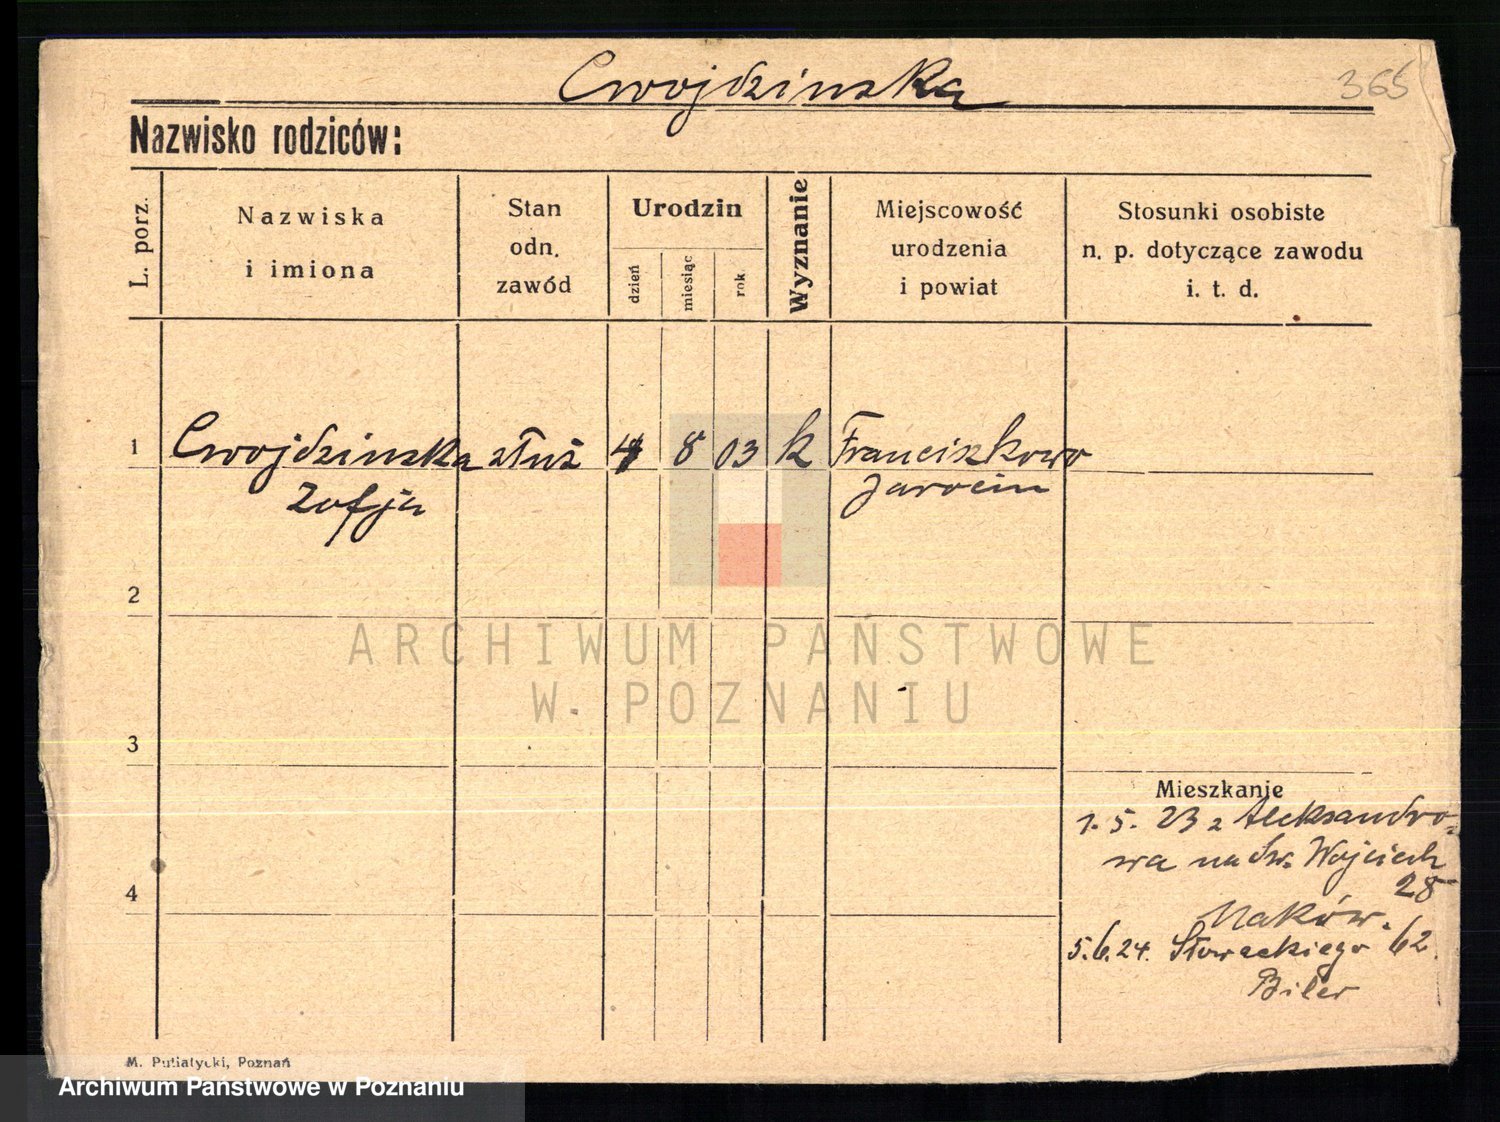 Cwojdzinska
365
Nazwisko rodziców:
L. porz.
Nazwiska
i imiona
Stan
odn.
zawód
Urodzin
dzień
miesiąc
rok
Wyznanie
Miejscowość
urodzenia
i powiat
Stosunki osobiste
n. p. dotyczące zawodu
i. t. d.
1 Cwojdzinska służ 4 8 03 k Franciszkowo
Zofja Jarocin
2
ARCHIWUM PAŃSTWOWE
W POZNANIU
3
Mieszkanie
1. 5. 23 z Aleksandro-
wa na Św. Wojciech
28
4
Maków.
5.6.24. Słowackiego 62.
Biler
M. Putiatycki, Poznań
Archiwum Państwowe w Poznaniu